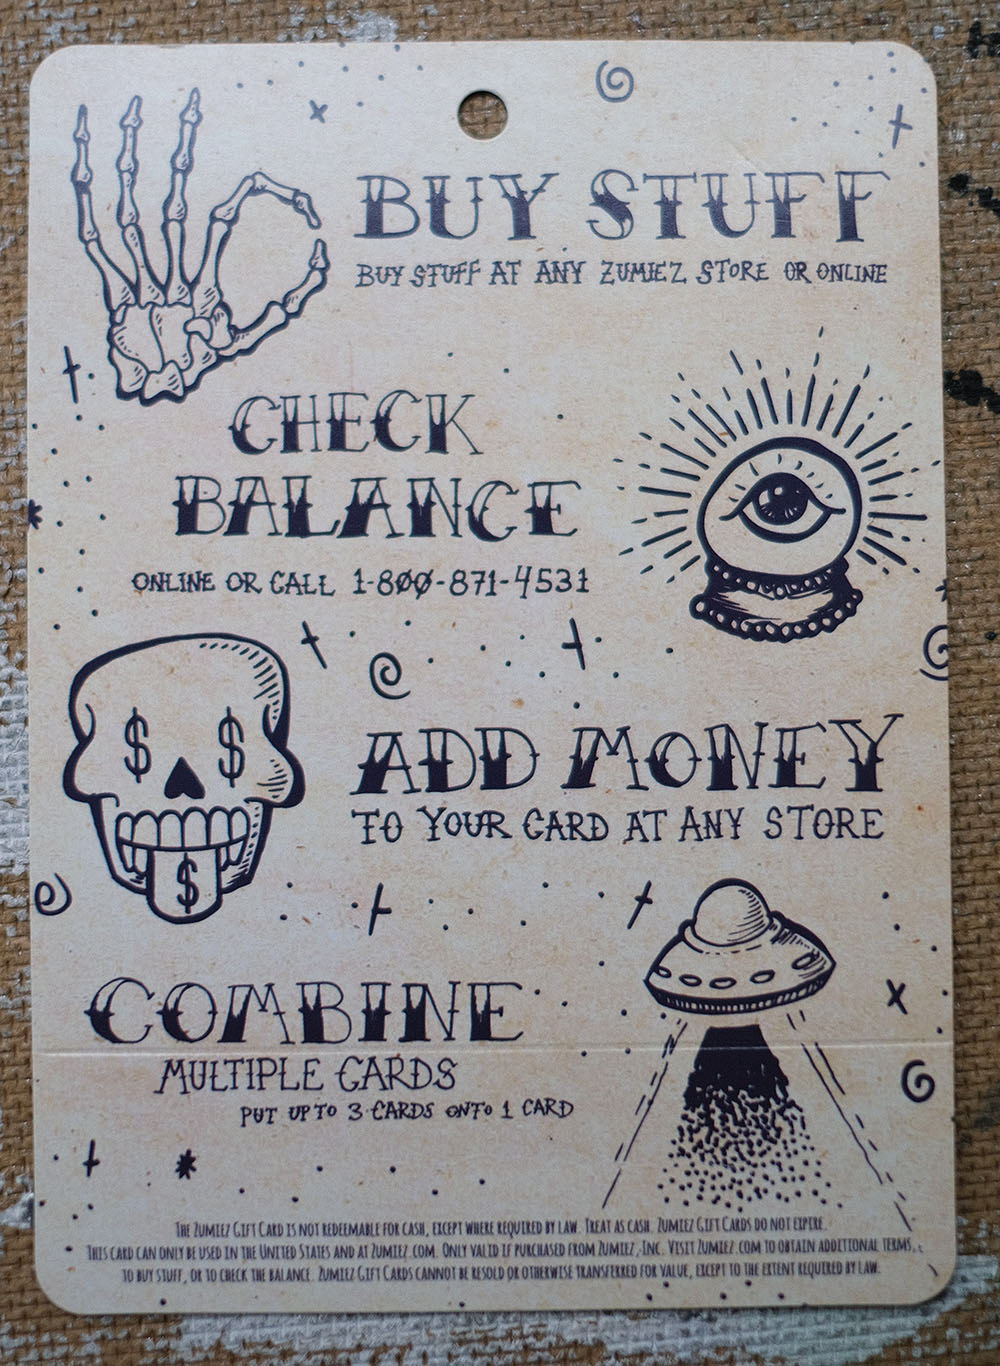 BUY STUFF
BUY STUFF AT ANY ZUMIEZ STORE OR ONLINE
CHECK
BALANCE
ONLINE OR CALL 1-800-871-4531
$ $
$
ADD MONEY
TO YOUR CARD AT ANY STORE
COMBINE
MULTIPLE CARDS
PUT UP TO 3 CARDS ONTO 1 CARD
THE ZUMIEZ GIFT CARD IS NOT REDEEMABLE FOR CASH, EXCEPT WHERE REQUIRED BY LAW. TREAT AS CASH. ZUMIEZ GIFT CARDS DO NOT EXPIRE.
THIS CARD CAN ONLY BE USED IN THE UNITED STATES AND AT ZUMIEZ.COM. ONLY VALID IF PURCHASED FROM ZUMIEZ, INC. VISIT ZUMIEZ.COM TO OBTAIN ADDITIONAL TERMS,
TO BUY STUFF, OR TO CHECK THE BALANCE. ZUMIEZ GIFT CARDS CANNOT BE RESOLD OR OTHERWISE TRANSFERRED FOR VALUE, EXCEPT TO THE EXTENT REQUIRED BY LAW.